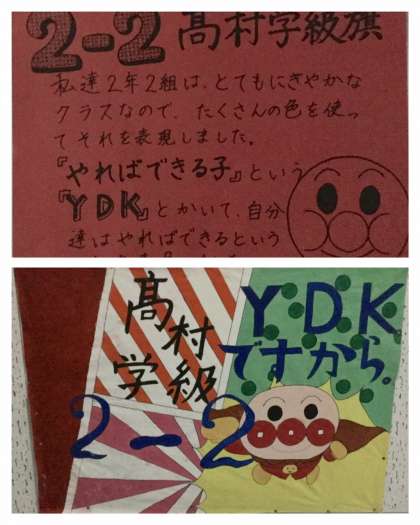 2-2 髙村学級旗
私達2年2組は、とてもにぎやかな
クラスなので、たくさんの色を使っ
てそれを表現しました。
『やればできる子』という
『YDK』とかいて、自分
達はやればできるという
髙村学級
2-2
YDK
ですから。